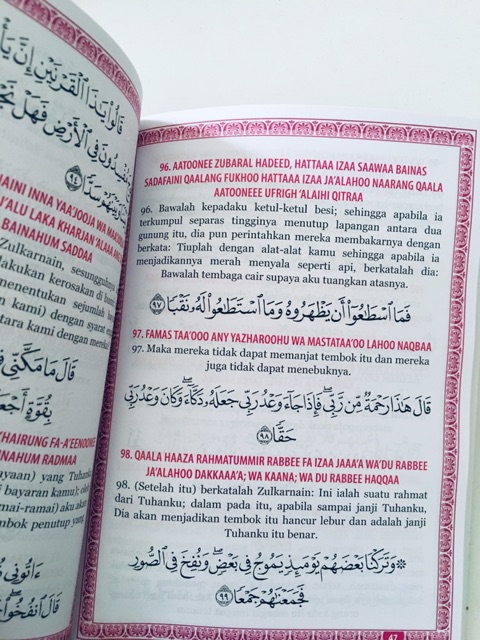 قَالُوا۟ يَـٰذَا ٱلْقَرْنَيْنِ إِنَّ
فِى ٱلْأَرْضِ فَهَلْ
٩٤
AINI INNA YAAJOOJA WA
LAKA KHARJAN
BAINAHUM SADDAA
Zulkarnain, sesungguhnya
lakukan kerosakan di bumi
menentukan sejumlah
kami) dengan syarat
tara kami dengan
قَالَ مَا مَكَّنِّى
بِقُوَّةٍ
KHAIRUNG FA-A'EENOONEE
RADMAA
yang Tuhanku
bayaran kamu);
mai-ramai) aku akan
penutup yang
ءَاتُونِى
قَالَ ٱنفُخُوا۟
96. AATOONEE ZUBARAL HADEED, HATTAAA IZAA SAAWAA BAINAS
SADAFAINI QAALANG FUKHOO HATTAAA IZAA JA'ALAHOO NAARANG QAALA
AATOONEEE UFRIGH 'ALAIHI QITRAA
96. Bawalah kepadaku ketul-ketul besi; sehingga apabila ia
terkumpul separas tingginya menutup lapangan antara dua
gunung itu, dia pun perintahkan mereka membakarnya dengan
berkata: Tiuplah dengan alat-alat kamu sehingga apabila ia
menjadikannya merah menyala seperti api, berkatalah dia:
Bawalah tembaga cair supaya aku tuangkan atasnya.
فَمَا ٱسْطَـٰعُوٓا۟ أَن يَظْهَرُوهُ وَمَا ٱسْتَطَـٰعُوا۟ لَهُۥ نَقْبًا ٩٧
97. FAMAS TAA'OOO ANY YAZHAROOHU WA MASTATAA'OO LAHOO NAQBAA
97. Maka mereka tidak dapat memanjat tembok itu dan mereka
juga tidak dapat menebuknya.
قَالَ هَـٰذَا رَحْمَةٌ مِّن رَّبِّى ۖ فَإِذَا جَآءَ وَعْدُ رَبِّى جَعَلَهُۥ دَكَّآءَ ۖ وَكَانَ وَعْدُ رَبِّى
حَقًّا ٩٨
98. QAALA HAAZA RAHMATUMMIR RABBEE FA IZAA JAAA'A WA'DU RABBEE
JA'ALAHOO DAKKAAA'A; WA KAANA; WA DU RABBEE HAQQAA
98. (Setelah itu) berkatalah Zulkarnain: Ini ialah suatu rahmat
dari Tuhanku; dalam pada itu, apabila sampai janji Tuhanku,
Dia akan menjadikan tembok itu hancur lebur dan adalah janji
Tuhanku itu benar.
۞ وَتَرَكْنَا بَعْضَهُمْ يَوْمَئِذٍ يَمُوجُ فِى بَعْضٍ ۖ وَنُفِخَ فِى ٱلصُّورِ
فَجَمَعْنَـٰهُمْ جَمْعًا ٩٩
47